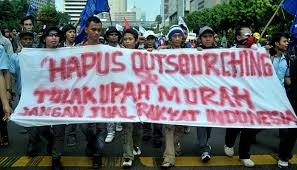 "HAPUS OUTSOURCHING
TOLAK UPAH MURAH
JANGAN JUAL RAKYAT INDONESIA